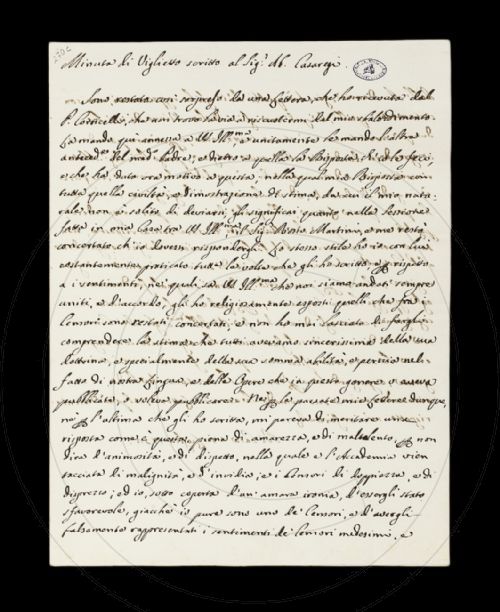 Minuta di Viglietto scritto al Sig.r Ab. Casaregi.
Sono restato così sorpreso da una Lettera, che ho ricevuta dal
P. Corticelli, che non trovo la via a riscuotermi del mio sbalordimento.
La mando qui annessa a VS Ill.ma, e unitamente le mando l'altra
anteced.te del med.o Padre, e dietro a quella la Risposta, ch'io le feci,
e che ha dato ora motivo a questa; nella qual mia Risposta con
tutta quella civiltà, e dimostrazione di stima, da cui il mio natu-
rale non è solito di deviarsi, gli significai quanto nella Sessione
fatta in mia Casa tra VS Ill.ma, il Sig. Martini, e me restò
concertato ch'io dovessi rispondergli. Lo stesso stile ho io con lui
costantemente praticato tutte le volte che gli ho scritto, e rispetto
a i sentimenti, ne i quali VS Ill.ma, che noi siamo andati sempre
uniti, e d'accordo, gli ho religiosamente esposti quelli che fra i
Censori sono restati concertati, e non ho mai lasciato di fargli
comprendere la stima che tutti avevamo sincerissima della sua
dottrina, e specialmente della sua somma abilità, e perizia nel
fatto di nostra Lingua, e delle Opere che in questo genere o aveva
pubblicate, o voleva pubblicare. Nè le passate mie Lettere dunque,
nè l'ultima che gli ho scritta, mi pareva di meritare una
risposta come è questa, piena di amarezza, e di maltalento, non
dirò d'animosità, e di dispetto, nella quale e l'Accademia vien
tacciata di malignità, e d'invidia, e i Censori di doppiezza, e di
disprezzo; ed io, sotto coperta d'un'amara ironia, d'essergli stato
sfavorevole, giacchè io pure sono uno de' Censori, e d'avergli
falsamente rappresentati i sentimenti de' Censori medesimi, e